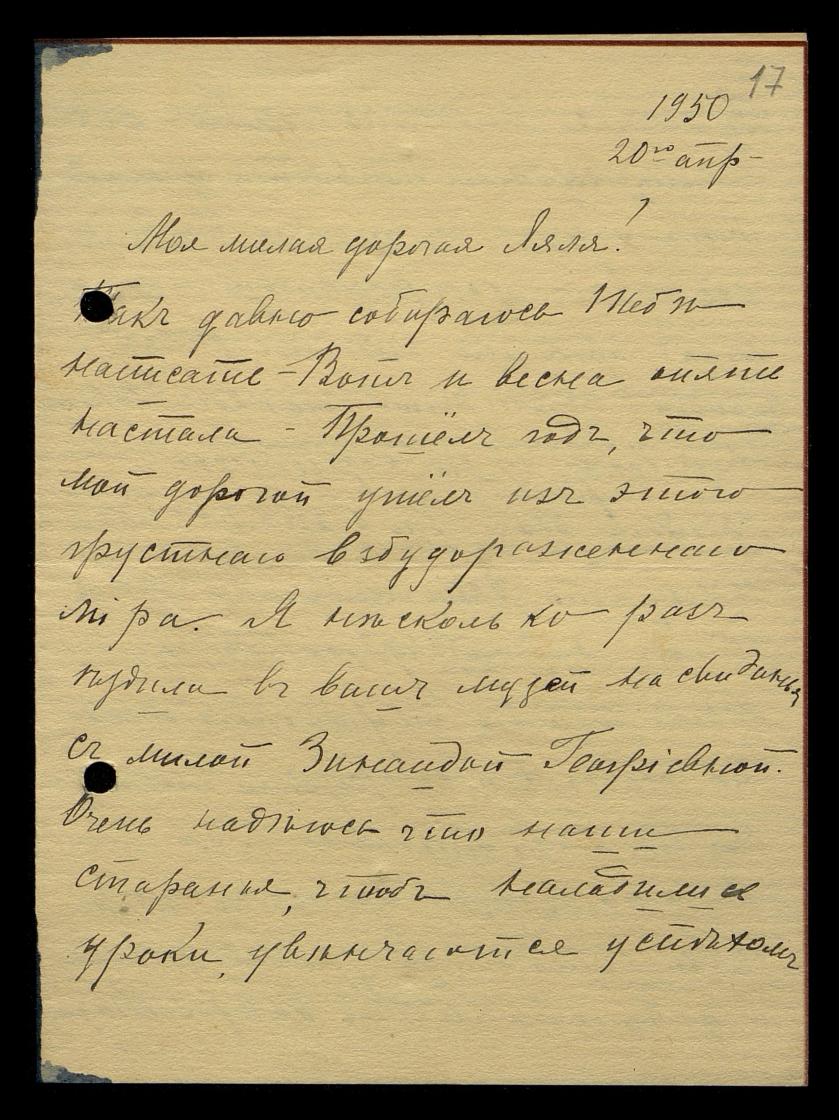 17
1950
20го апр-
Моя милая дорогая Ляля!
Такъ давно собираюсь Тебѣ
написать - Вотъ и весна опять
настала - Прошёлъ годъ, что
мой дорогой ушёлъ изъ этого
грустнаго взбудораженнаго
мiра. Я нѣсколько разъ
ѣздила въ вашъ музей на свиданья
съ милой Зинаидой Георгiевной.
Очень надѣюсь что наши
старанья, чтобъ наладились
уроки, увѣнчаются успѣхомъ